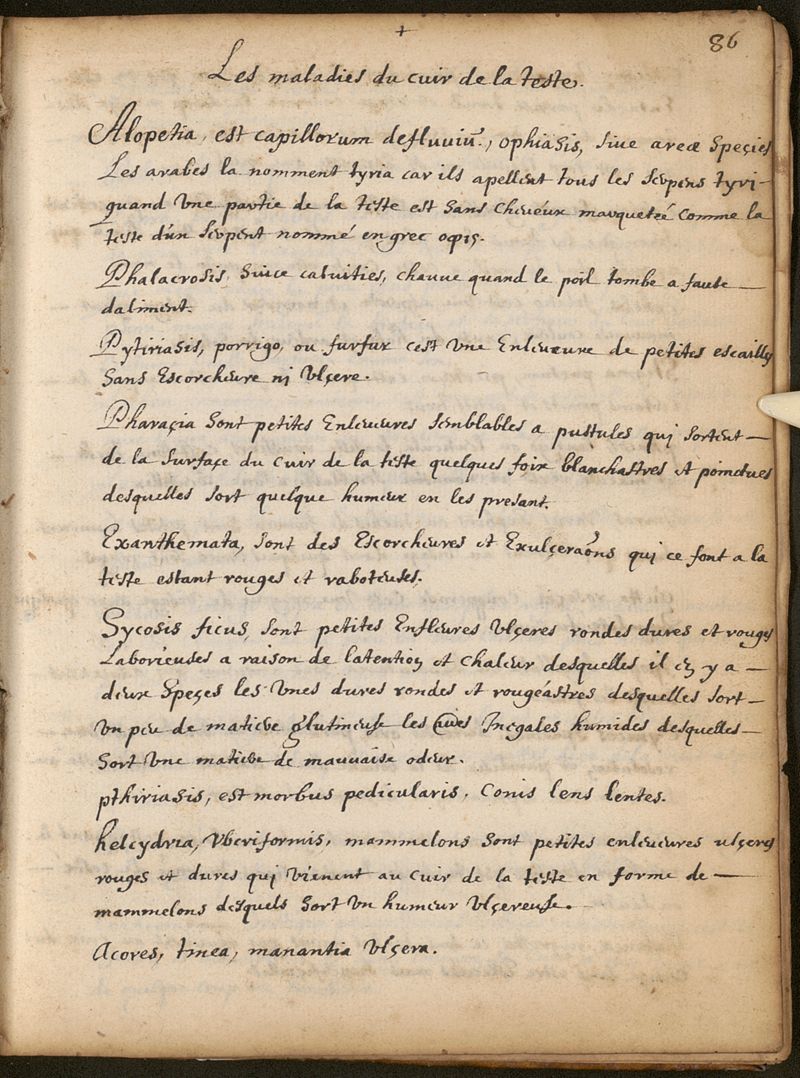 +
86
Les maladies du cuir de la teste.
Alopetia, est capillorum defluuiū., ophiasis, siue areæ speçies
Les arabes la nomment tyria car ils apellent tous les serpens tyri-
quand une partie de la teste est sans cheueux marquetée comme la
teste d'un serpent nommé en grec οφις.
Phalacrosis, siuce caluities, chauue quand le poil tombe a faute
daliment.
Pytiriasis, porrigo, ou furfur cest une Enleueure de petites escailly
sans Escorcheure nj ulçere.
Pharaçia sont petites Enleuures semblables a pustules qui sortent
de la surfaçe du cuir de la teste quelques foix blanchastres et poinctues
desquelles sort quelque humeur en les presant.
Exanthemata, sont des Escorcheures et Exulçeraõns qui ce font a la
teste estant rouges et raboteuses.
Sycosis ficus, sont petites Enfleures ulçeres rondes dures et rouges
Laborieuses a raison de latention et chaleur desquelles il en y a
deux speçes les unes dures rondes et rougéastres desquelles sort
un peu de matiere glutineuse les Inegales humides desquelles
sort une matiere de mauuaise odeur.
pthiriasis, est morbus pedicularis, Conis lens lentes.
helcydria, uberiformis, mammelons sont petites enleueures ulçeres
rouges et dures qui vienent au cuir de la teste en forme de
mammelons desquels sort un humeur ulçereuse.
Acores, tinea, manantia ulçera.